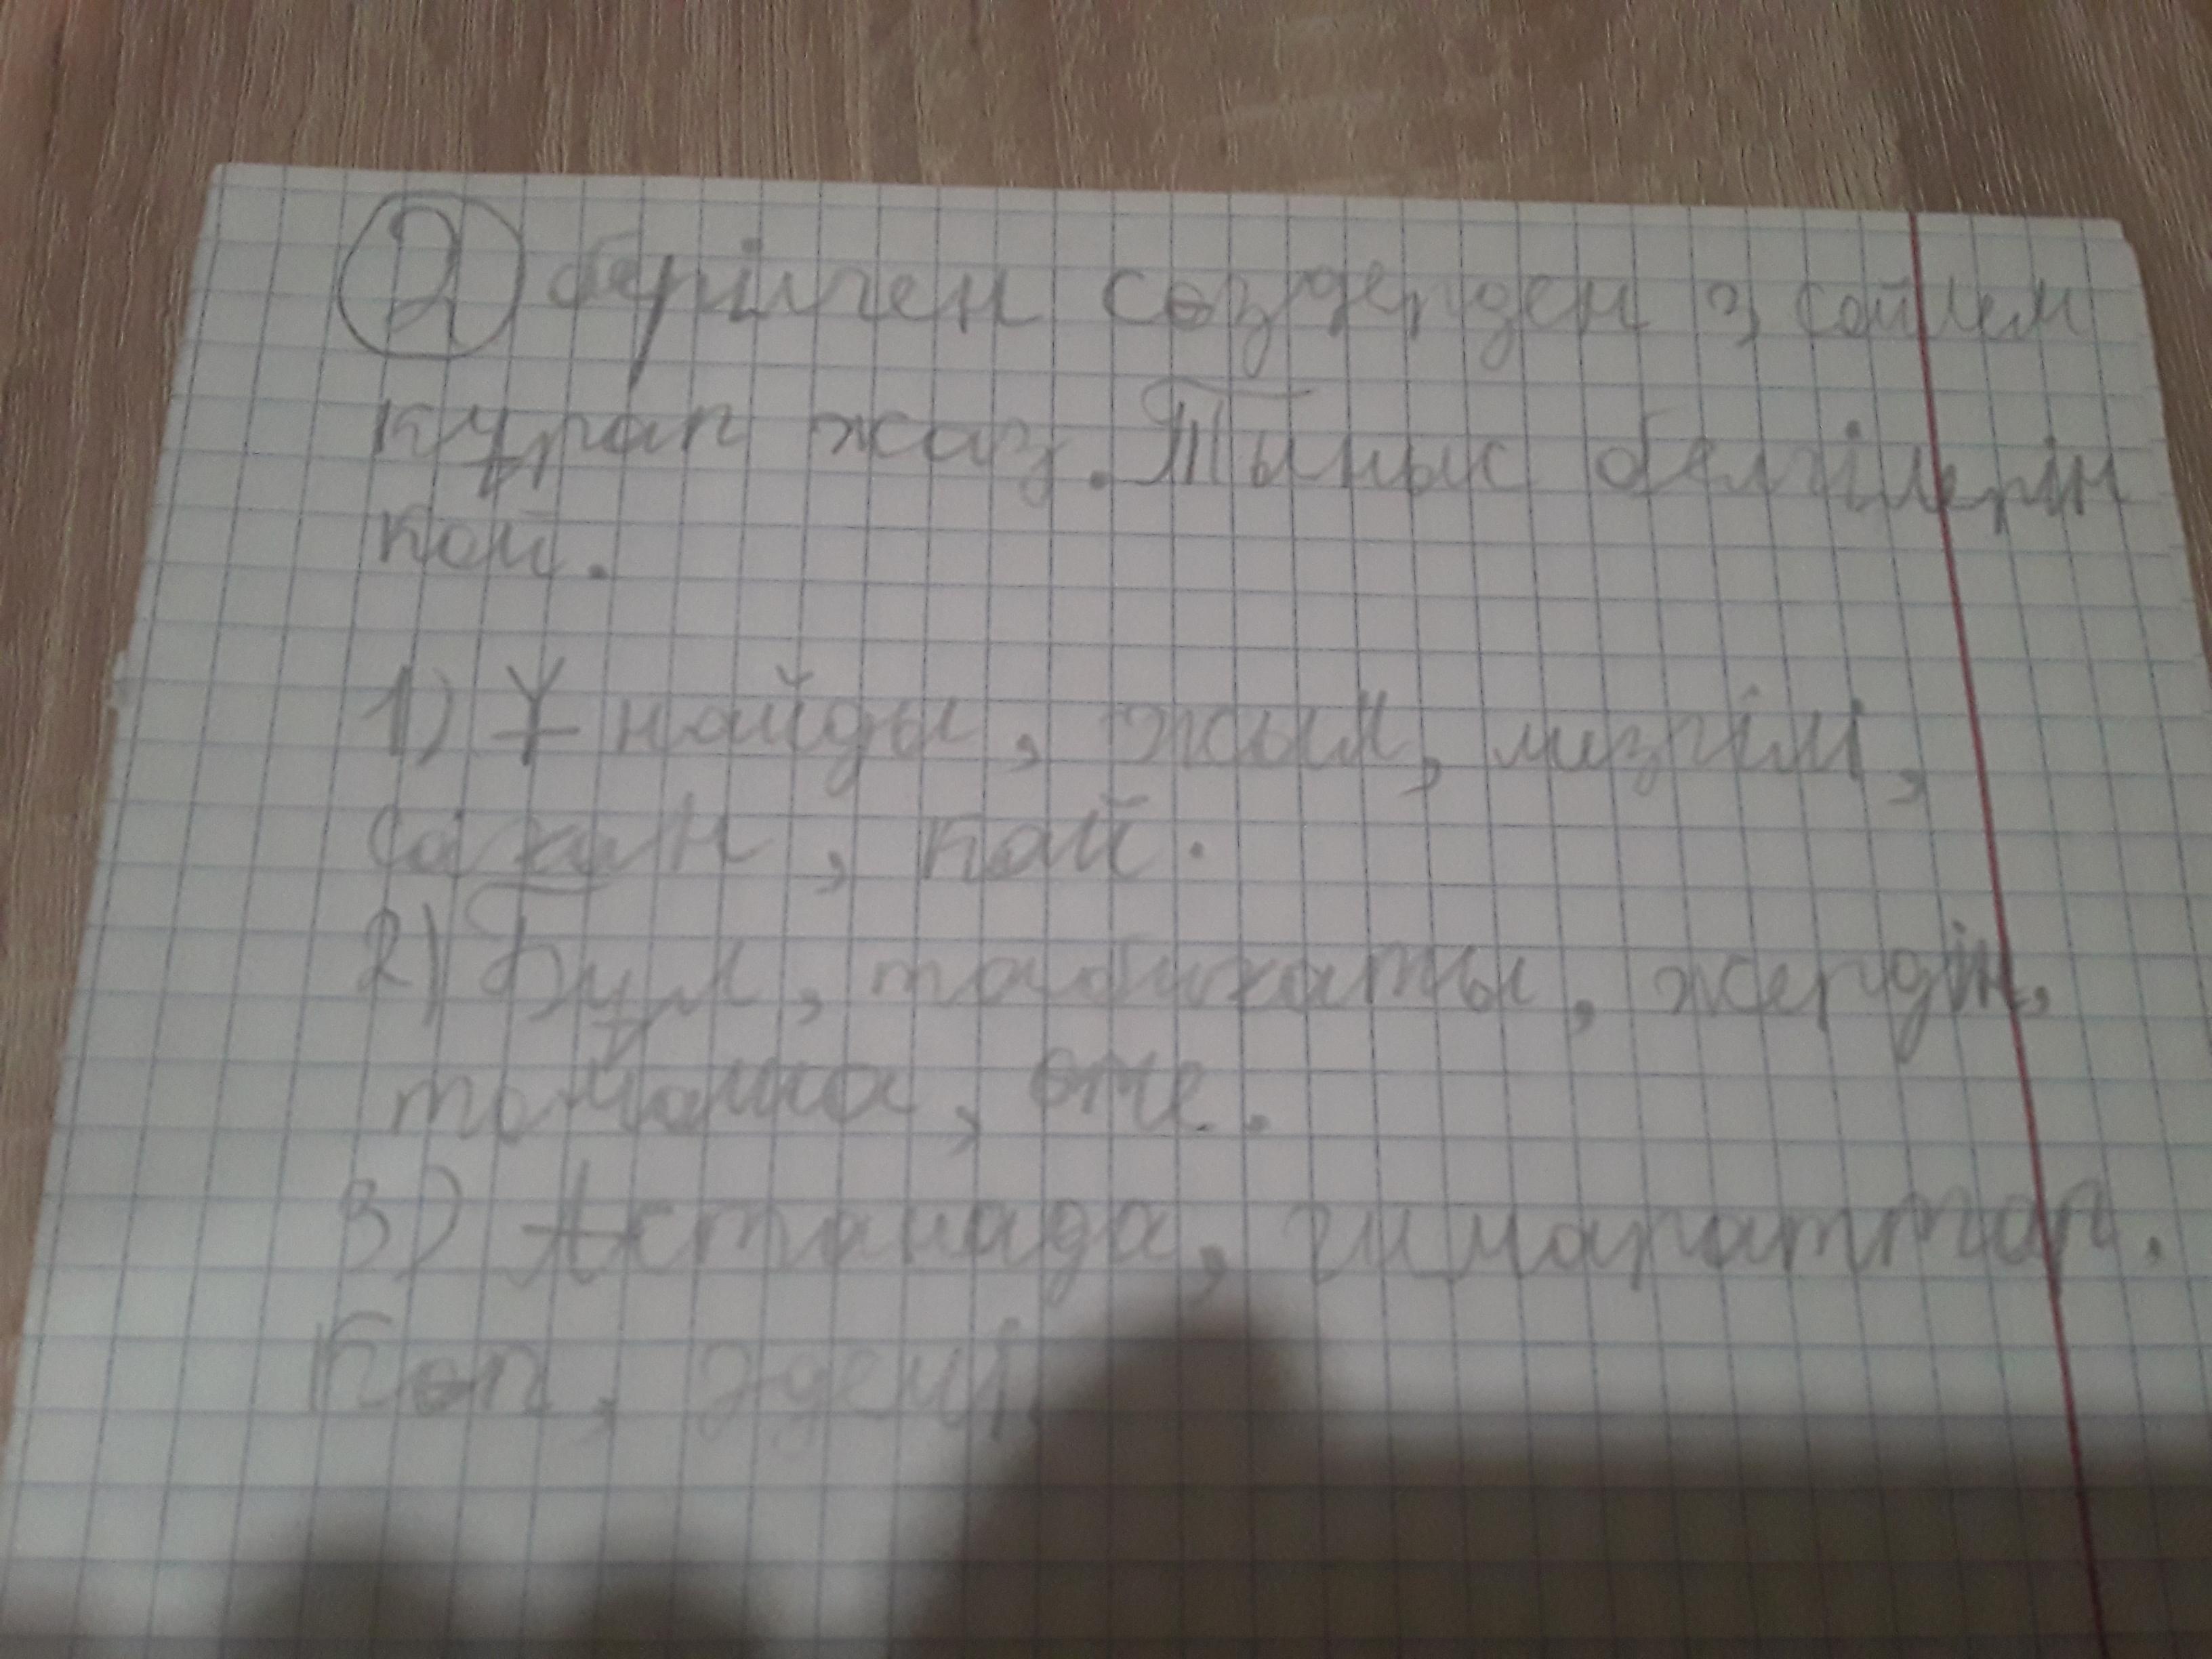 ② берілген сөздерден 3 сөйлем
құрап жаз. Тыныс белгілерін
кой.
1) Ұнайды, жыл, мезгілі,
саған, кай.
2) Бұл, табиғаты, жердің,
тамаша, өте.
3) Астанада, ғимараттар.
Көп, әдемі.